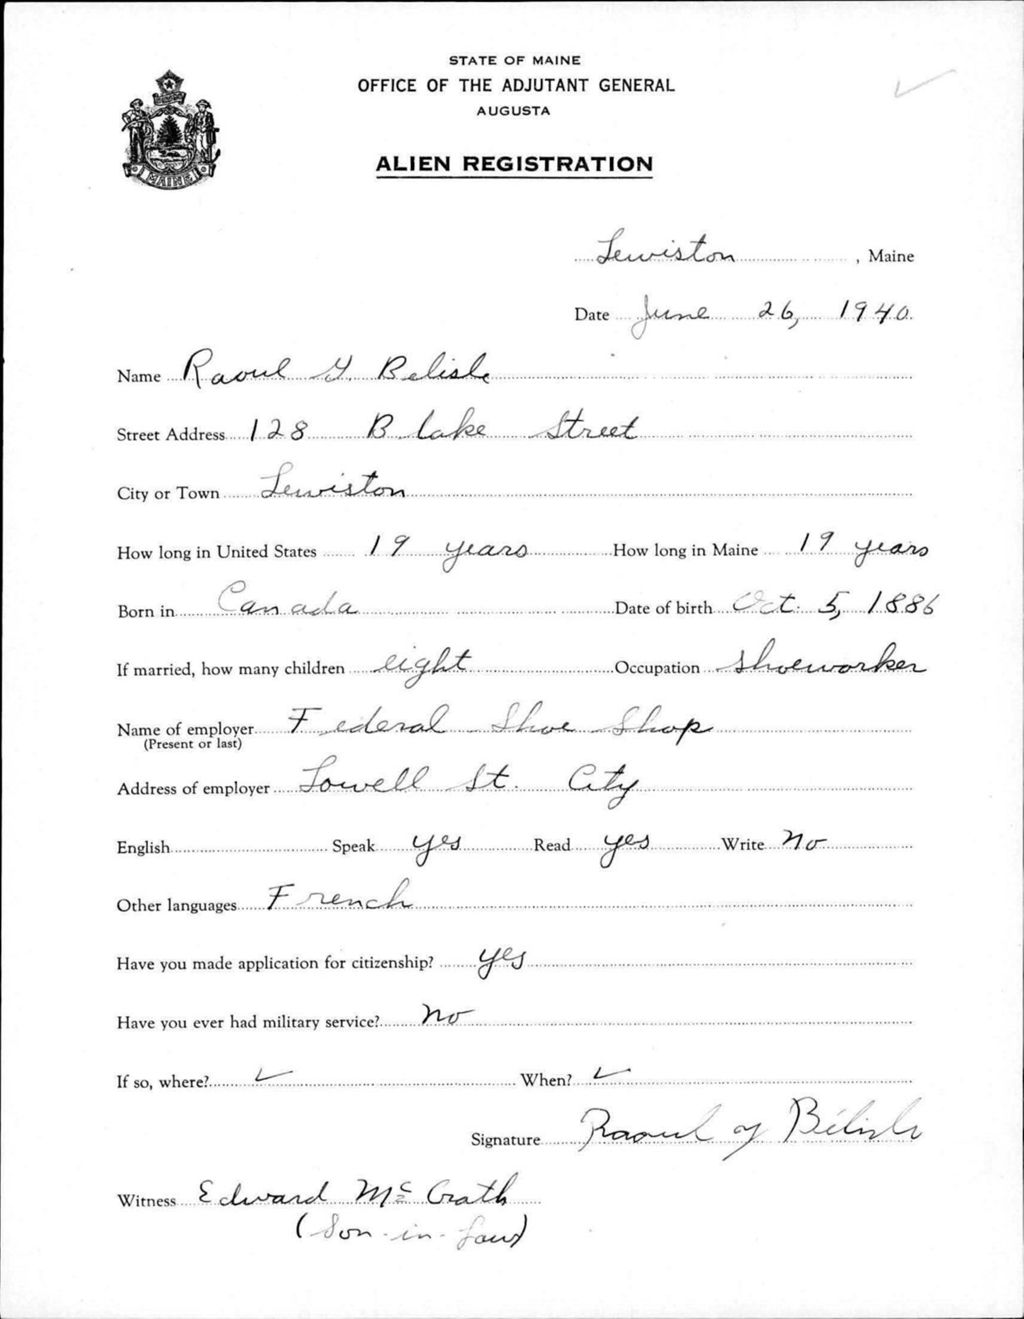 STATE OF MAINE
OFFICE OF THE ADJUTANT GENERAL
AUGUSTA
ALIEN REGISTRATION
MAINE
Lewiston, Maine
Date June 26, 1940.
Name Raoul Y. Belisle
Street Address 128 Blake Street
City or Town Lewiston
How long in United States 19 years How long in Maine 19 years
Born in Canada Date of birth Oct. 5, 1886
If married, how many children eight Occupation Shoeworker
Name of employer Federal Shoe Shop
(Present or last)
Address of employer Lowell St. City
English Speak yes Read yes Write No
Other languages French
Have you made application for citizenship? yes
Have you ever had military service? No
If so, where? ✓ When? ✓
Signature Raoul y Bélisle
Witness Edward McGrath
(Son-in-law)